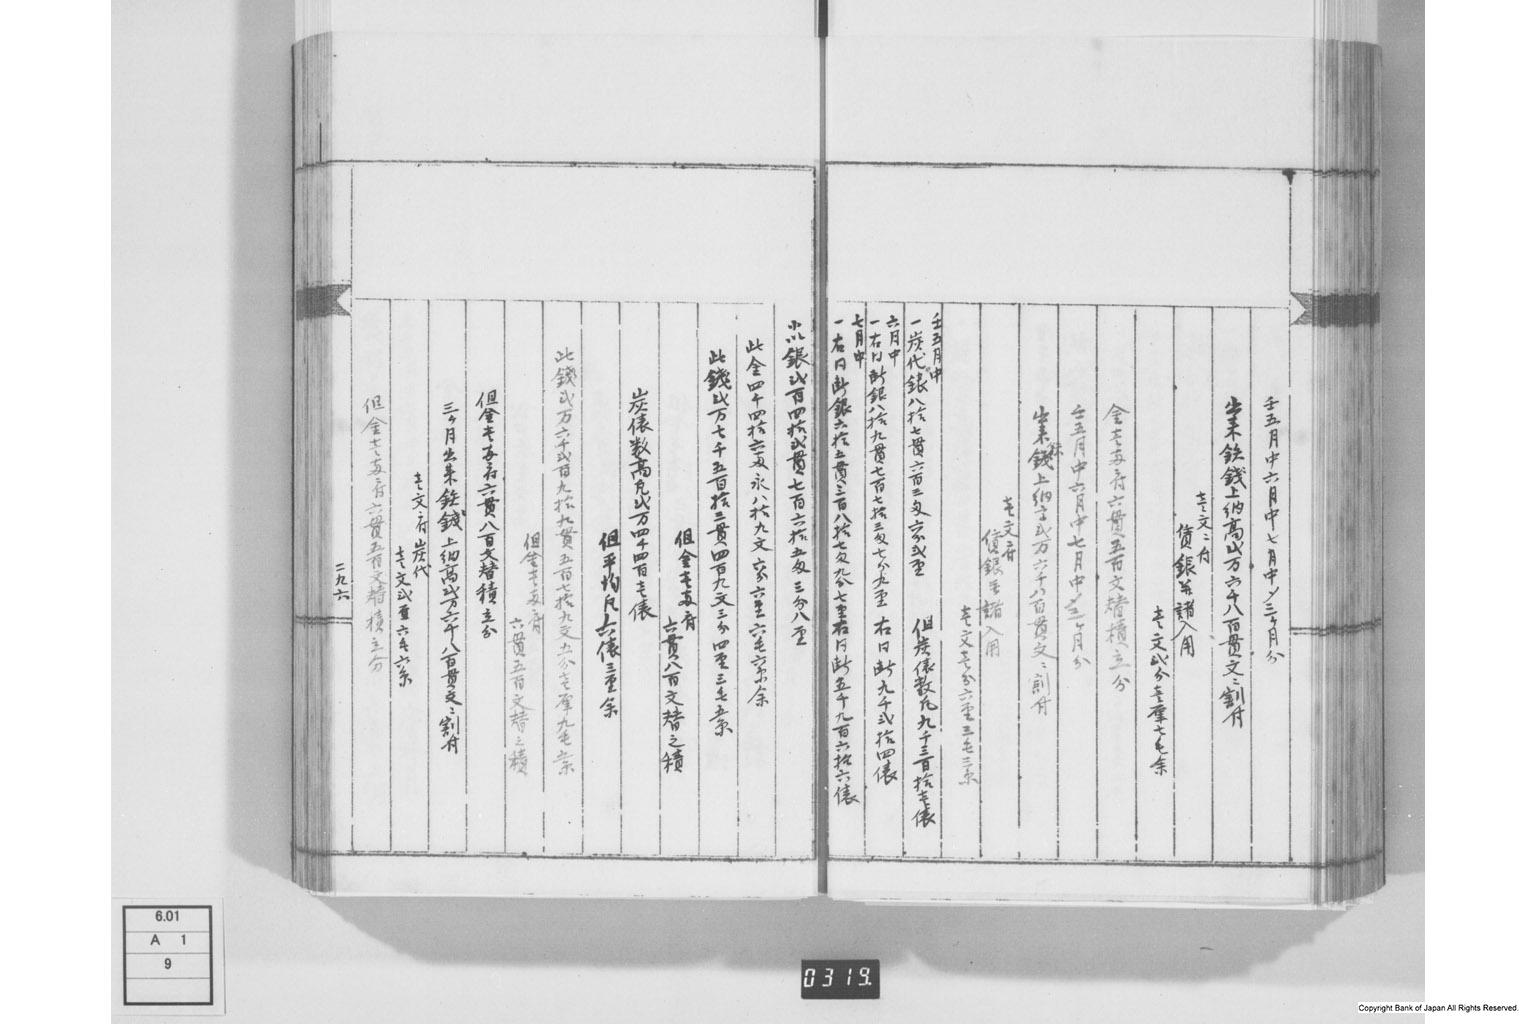 壬五月中六月中七月中〆三ヶ月分
出来鉄銭上納高弐万六千八百貫文ニ割付
壱文ニ付
賃銀并諸入用
壱文弐分壱厘七毛余
金壱両ニ付六貫五百文替積立分
壬五月中六月中七月中〆三ヶ月分
出来銭上納高弐万六千八百貫文ニ割付
壱文ニ付
賃銀并諸入用
壱文壱分六厘三毛三糸
壬五月中
一炭代銀八拾七貫六百三匁六分弐厘
但炭俵数凡九千三百拾壱俵
六月中
一右同断銀八拾九貫七百七拾三匁七分九厘 右同断九千弐拾四俵
七月中
一右同断銀六拾五貫三百八拾七匁九分七厘右同断五千九百六拾六俵
小以銀弐百四拾弐貫七百六拾五匁三分八厘
此金四千四拾六両永八拾九文六分六厘六毛六糸余
此銭弐万七千五百拾三貫四百九文三分四厘三毛五糸
但金壱両ニ付
六貫八百文替之積
炭俵数高凡弐万四千四百壱俵
但平均凡六俵三厘余
此銭弐万六千弐百九拾九貫五百七拾九文五分壱厘九毛六糸
但金壱両ニ付
六貫五百文替之積
但金壱両ニ付六貫八百文替積立分
三ヶ月出来鉄銭上納高弐万六千八百貫文ニ割付
壱文ニ付炭代
壱文弐厘六毛六糸
但金壱両ニ付六貫五百文替積立分
二九六
6.01
A 1
9
0319.
Copyright Bank of Japan All Rights Reserved.